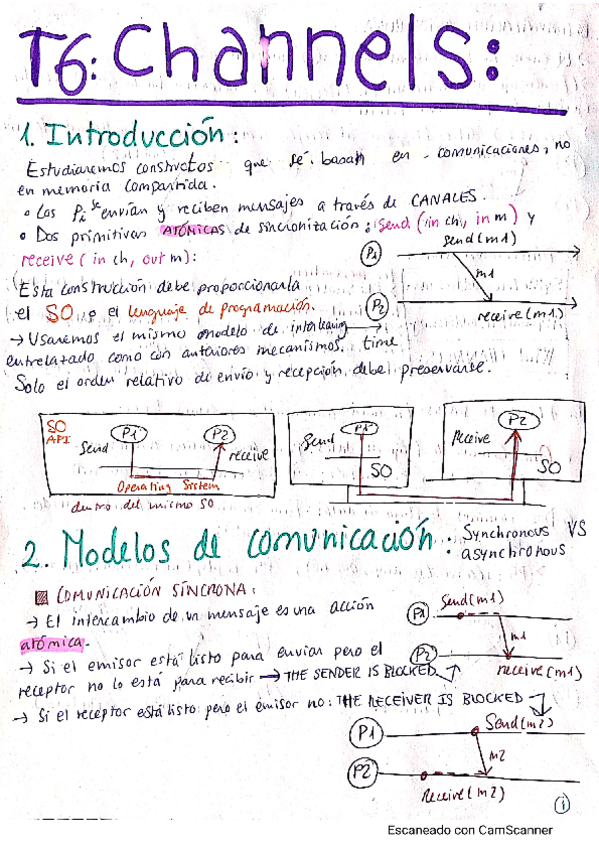 T6: Channels:
1. Introducción:
Estudiaremos constructos que se basan en comunicaciones, no
en memoria compartida.
• Los Pi se envían y reciben mensajes a través de CANALES.
• Dos primitivas ATÓMICAS de sincronización: send (in ch, in m) y
receive (in ch, out m):
P1
send(m1)
m1
P2
receive(m1)
time
Esta construcción debe proporcionarla
el SO o el lenguaje de programación.
→ Usaremos el mismo modelo de interleaving
entrelazado como con anteriores mecanismos.
Solo el orden relativo de envío y recepción debe preservarse.
SO
API
Send
P1
P2
receive
Operating System
dentro del mismo SO
Send
P1
SO
Receive
P2
SO
2. Modelos de comunicación: Synchronous VS
asynchronous
COMUNICACIÓN SÍNCRONA:
→ El intercambio de un mensaje es una acción
atómica.
→ Si el emisor está listo para enviar pero el
receptor no lo está para recibir → THE SENDER IS BLOCKED
→ Si el receptor está listo pero el emisor no: THE RECEIVER IS BLOCKED
P1
Send(m1)
m1
P2
receive(m1)
P1
Send(m2)
m2
P2
Receive(m2)
1
Escaneado con CamScanner